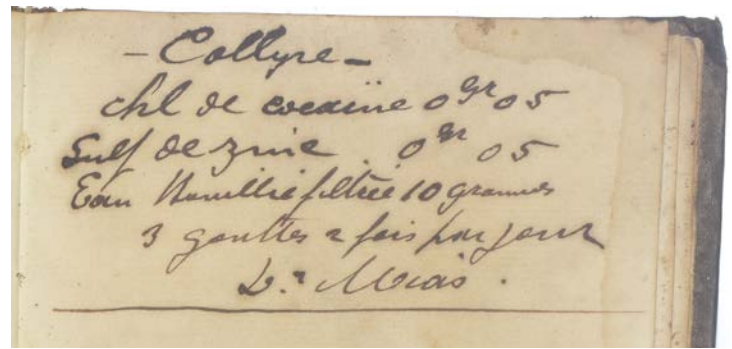 - Collyre -
chl de cocaïne 0 gr 05
Sulf de zinc 0 gr 05
Eau bouillie filtrée 10 grammes
3 gouttes 2 fois par jour
Dr